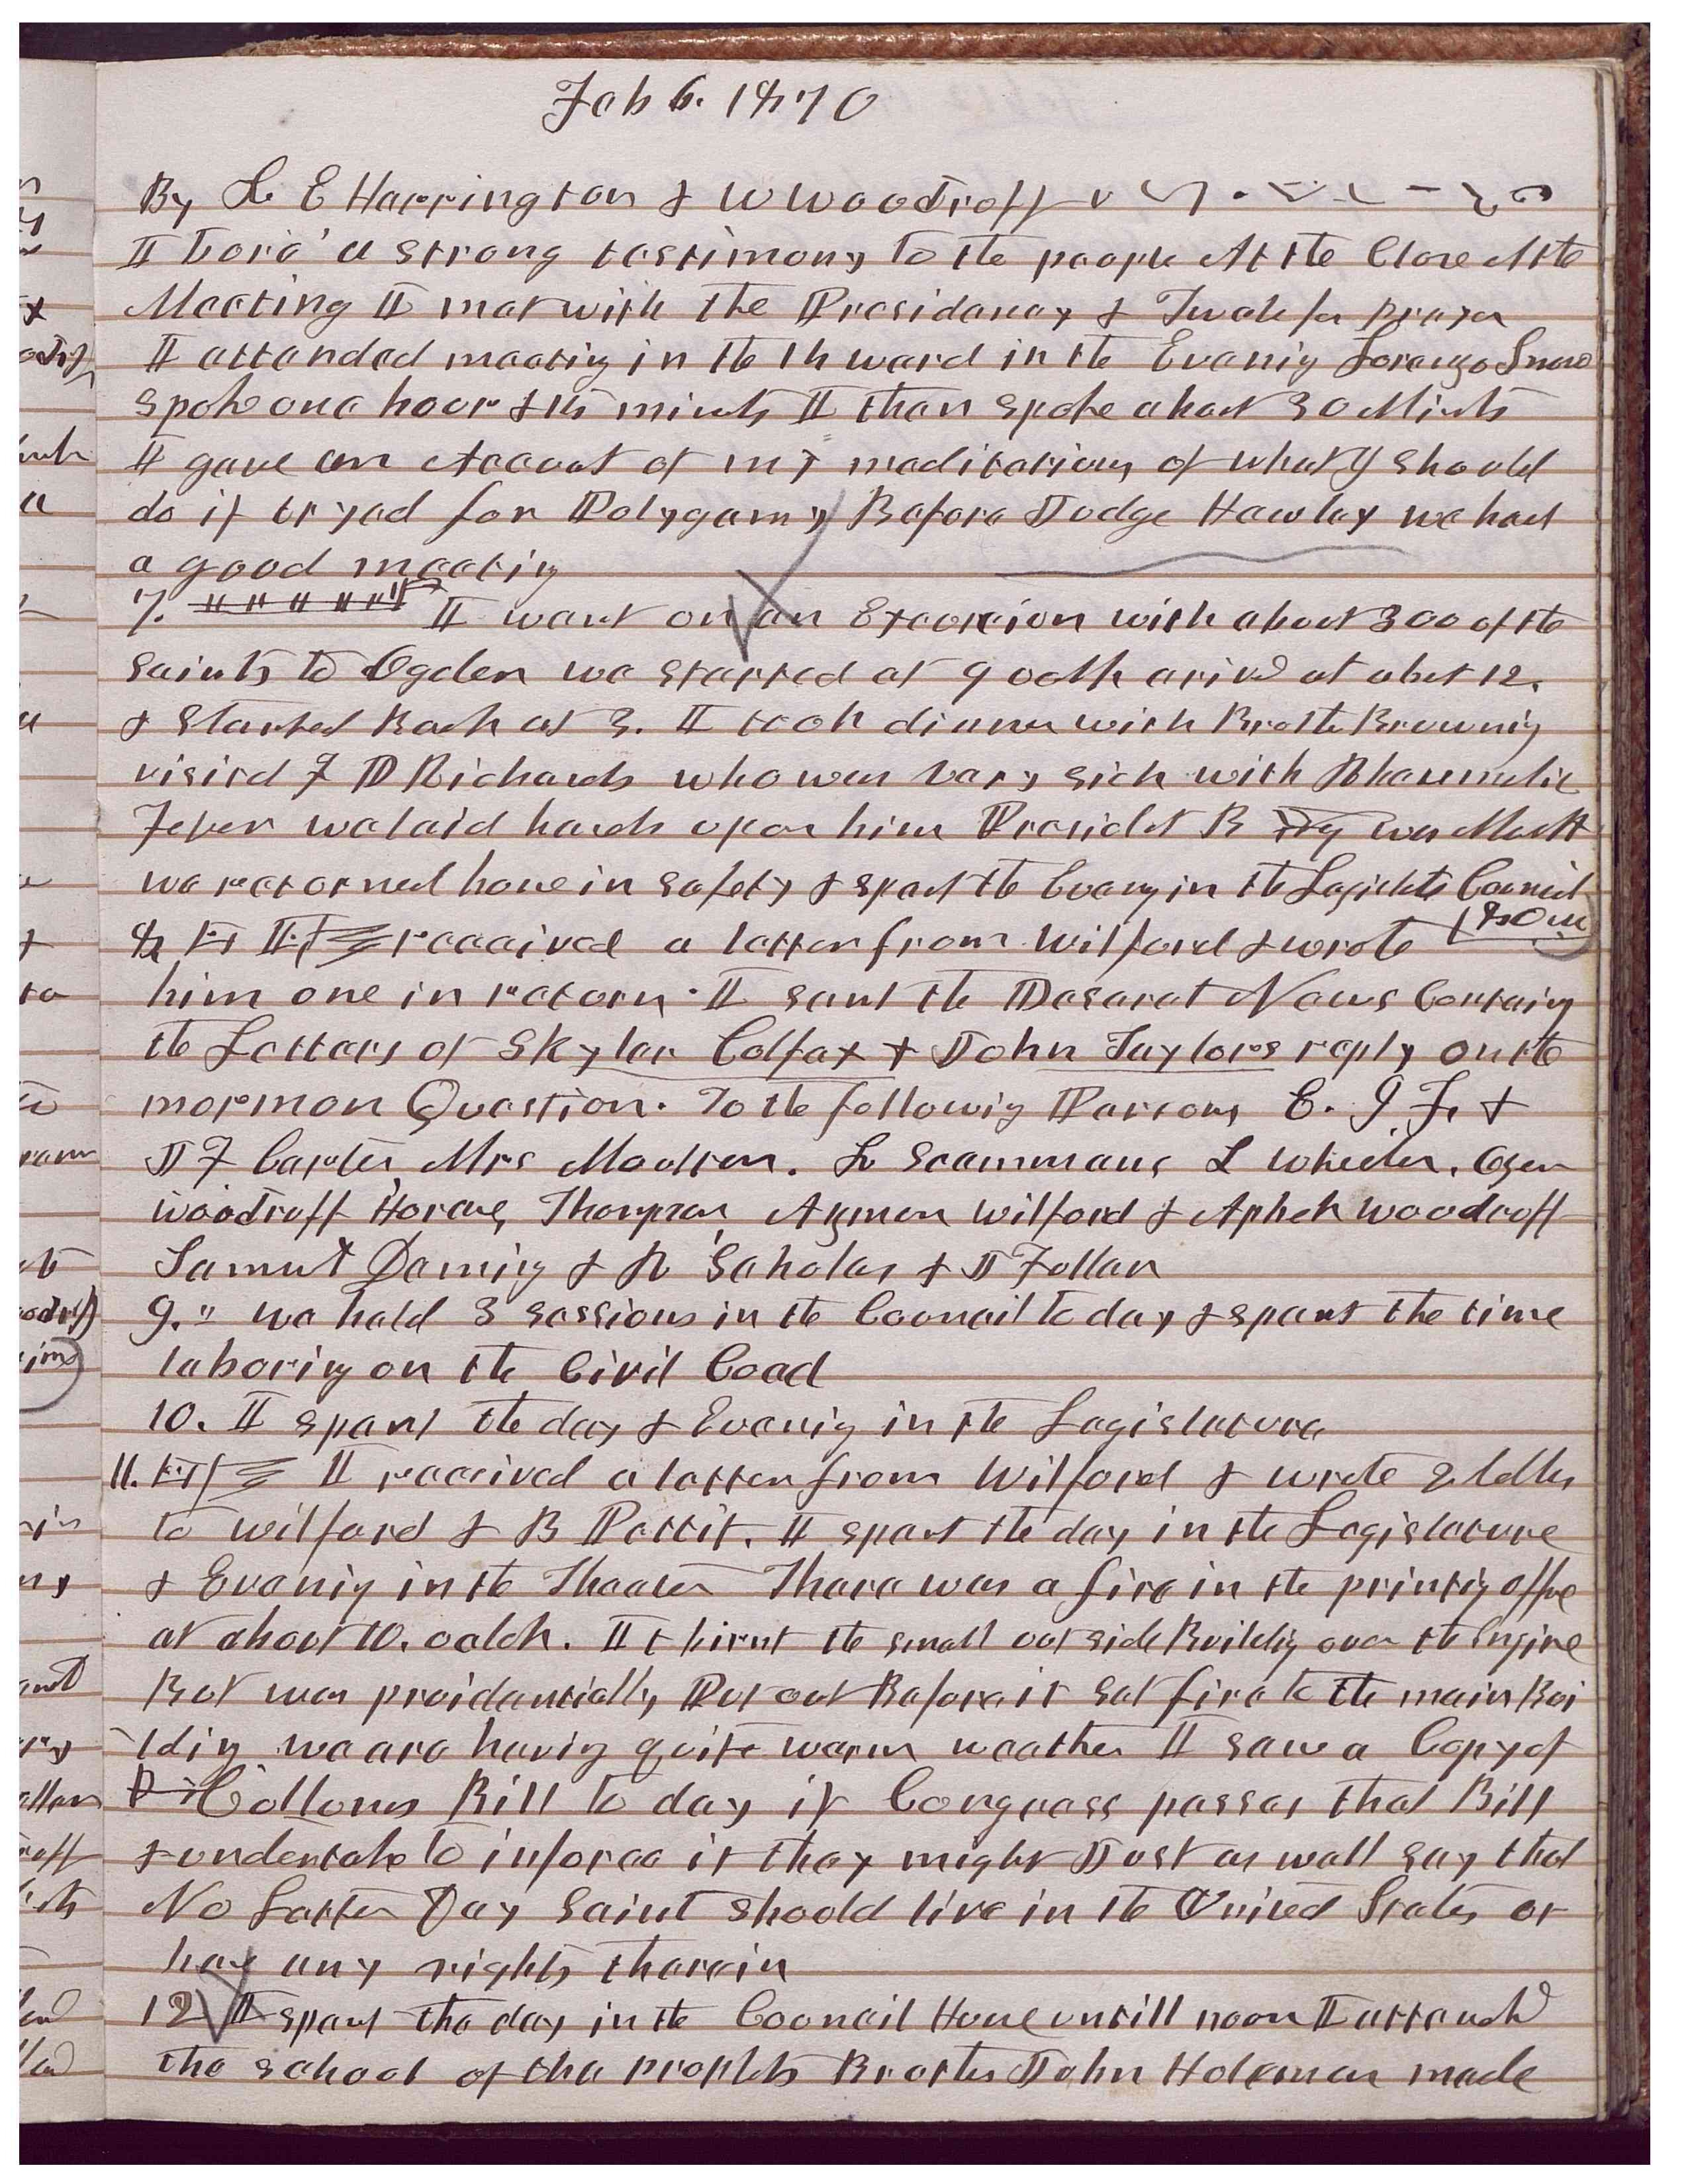 Feb 6. 1870
By L E Harrington & W Woodruff
I bore a strong testimony to the people At the Close of the
Meeting I met with the Presidency & Twelve for Prayer
I attended meeting in the 14 ward in the Evenig Lorenzo Snow
spoke one hour & 15 minuts I then spoke about 30 Minuts
I gave an Account of my meditations of what I should
do if tryed for Polygamy Before Judge Hawley we had
a good meetig
7. I went on an Excursion with about 300 of the
saints to Ogden we started at 9 oclk arivd at about 12.
& Started Back at 3. I took dinner with Brother Brownig
visitd F D Richards who was very sick with Rheumatic
Fever we laid hands upon him Presidet B Yg was Mouth
we returned home in safety & spent the Eveng in the Legislate Council
8 I received a letter from Wilford & wrote 80 m
him one in return. I sent the Deseret News Containg
the Letters of Skyler Colfax & John Taylors reply on the
mormon Question. To the followig Persons E. I F, &
J F Carter, Mrs Moulton. L Scammans L Wheeler, Ozem
Woodruff Horace, Thompson Azmon Wilford & Aphek Woodruff
Samuel Deming & R Scholes & J Fuller
9." we held 3 sessions in the Council to day & spent the time
laborig on the Civil Coad
10. I spent the day & Evenig in the Legislature
11. I received a letter from Wilford & wrote 2 letters
to Wilford & B Pettit. I spent the day in the Legislature
& Evenig in the Theater There was a fire in the printig office
at about 10. oclok. It birnt the small out side Buildig over the Engine
But was providentially Put out Before it set fire to the main Bui
ldig we are havig quite warm weather I saw a Copy of
Colloms Bill to day if Congress passes that Bill
& undertake to inforce it they might Just as well say that
No Latter Day Saint should live in the United States or
have any rights therein
12 I spent the day in the Council House untill noon I attended
the school of the prophets Brother John Holeman made